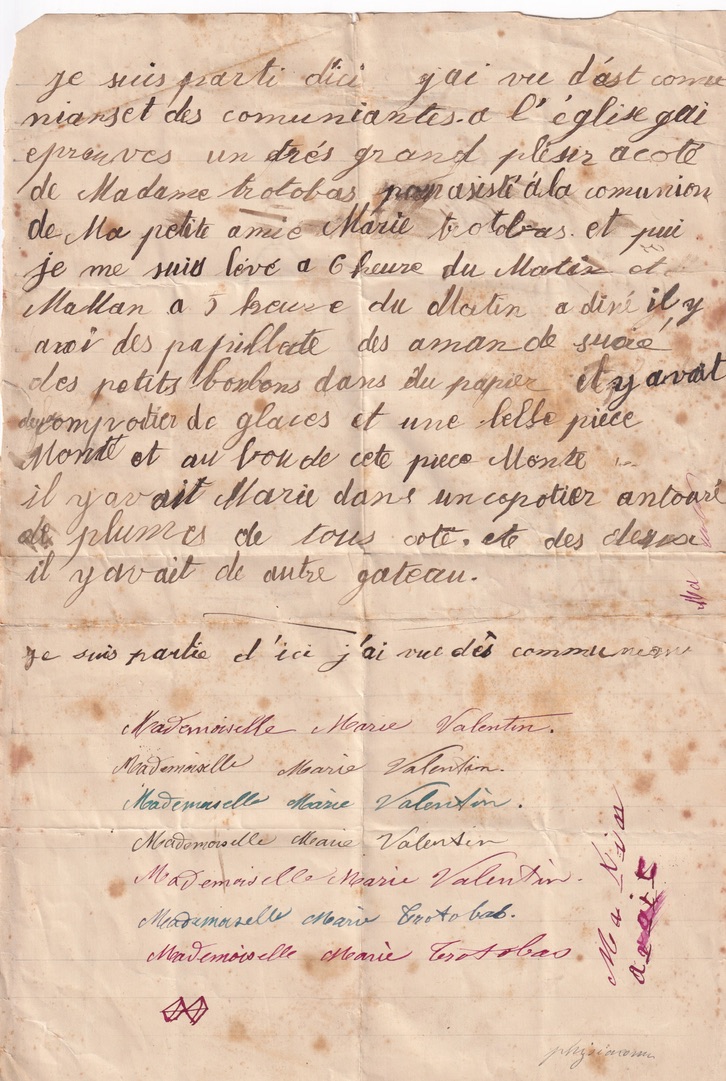 je suis parti d'ici j'ai vu d'ast comu
nianset des comuniantes. a l'église gai
eprouves un trés grand plésir a coté
de Madame trotobas par asisté á la comunion
de Ma petite amie Marie trotobas. et pui
je me suis lévé a 6 heure du Matin et
MaMan a 5 heure du Matin a diné il y
avoi des papillote des aman de sucré
des petits bonbons dans du papier il y avait
deux compotier de glaces et une belle pièce
Monté et au bou de cete piece Monte
il y avait Marie dans un copotier antouré
de plumes de tous coté. ete des
il y avait de autre gateau.
je suis partie d'ici j'ai vue dès commune
Mademoiselle Marie Valentin.
Mademoiselle Marie Valentin.
Mademoiselle Marie Valentin.
Mademoiselle Marie Valentin
Mademoiselle Marie Valentin.
Mademoiselle Marie Trotobas.
Mademoiselle Marie Trotobas
Ma